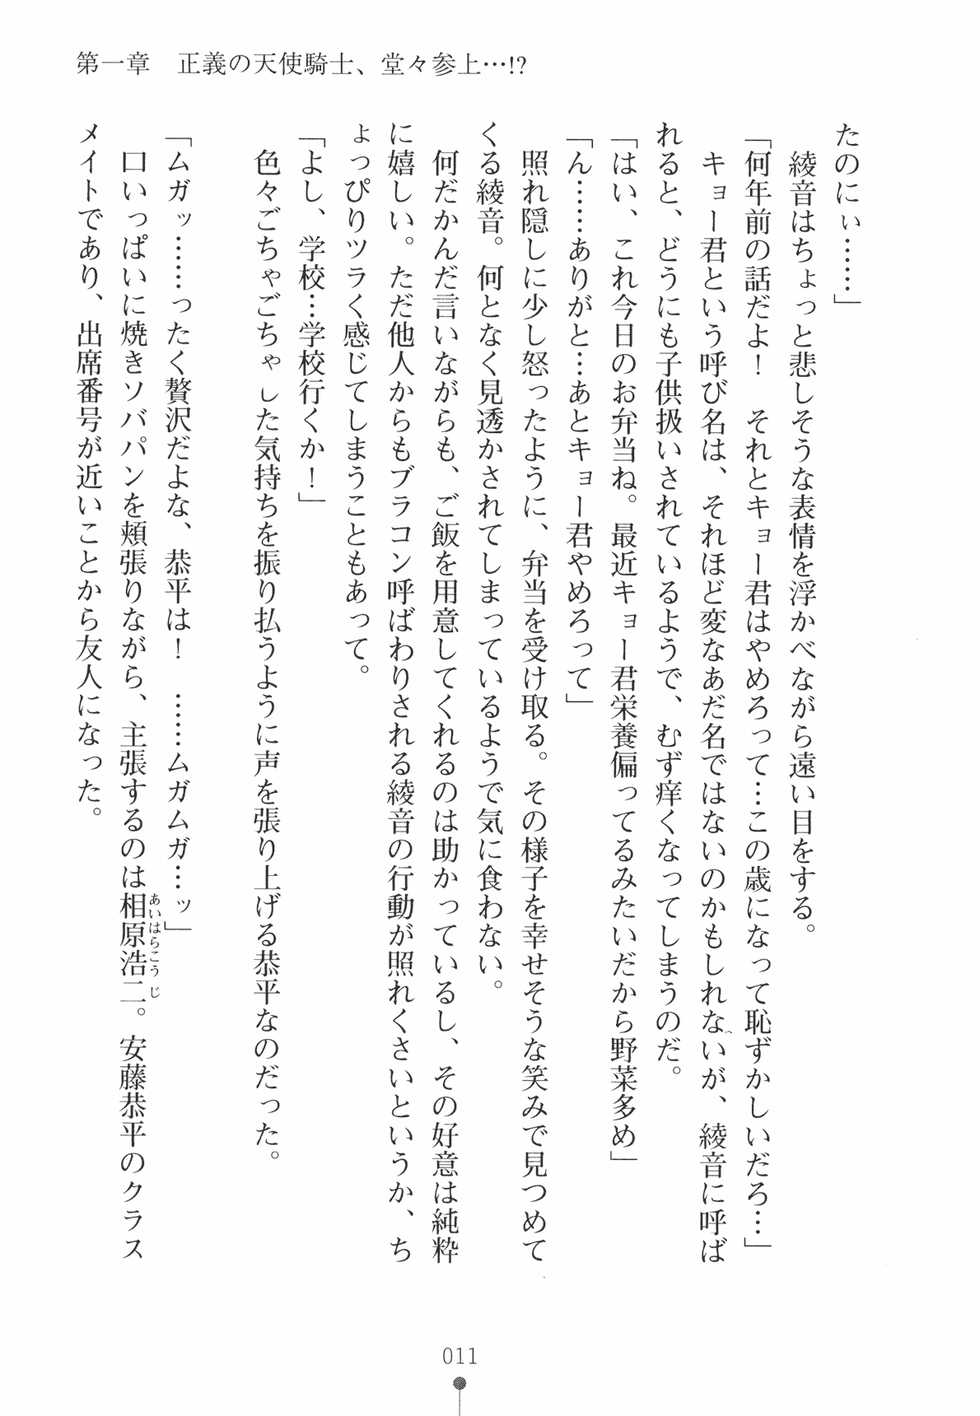 第一章　正義の天使騎士、堂々参上…!?
たのにぃ……」
　綾音はちょっと悲しそうな表情を浮かべながら遠い目をする。
「何年前の話だよ！　それとキョー君はやめろって…この歳になって恥ずかしいだろ…」
　キョー君という呼び名は、それほど変なあだ名ではないのかもしれないが、綾音に呼ば
れると、どうにも子供扱いされているようで、むず痒くなってしまうのだ。
「はい、これ今日のお弁当ね。最近キョー君栄養偏ってるみたいだから野菜多め」
「ん……ありがと…あとキョー君やめろって」
　照れ隠しに少し怒ったように、弁当を受け取る。その様子を幸せそうな笑みで見つめて
くる綾音。何となく見透かされてしまっているようで気に食わない。
　何だかんだ言いながらも、ご飯を用意してくれるのは助かっているし、その好意は純粋
に嬉しい。ただ他人からもブラコン呼ばわりされる綾音の行動が照れくさいというか、ち
ょっぴりツラく感じてしまうこともあって。
「よし、学校…学校行くか！」
　色々ごちゃごちゃした気持ちを振り払うように声を張り上げる恭平なのだった。
「ムガッ……ったく贅沢だよな、恭平は！　……ムガムガ…ッ」
　口いっぱいに焼きソバパンを頬張りながら、主張するのは相原浩二。安藤恭平のクラス
あいはらこうじ
メイトであり、出席番号が近いことから友人になった。
011